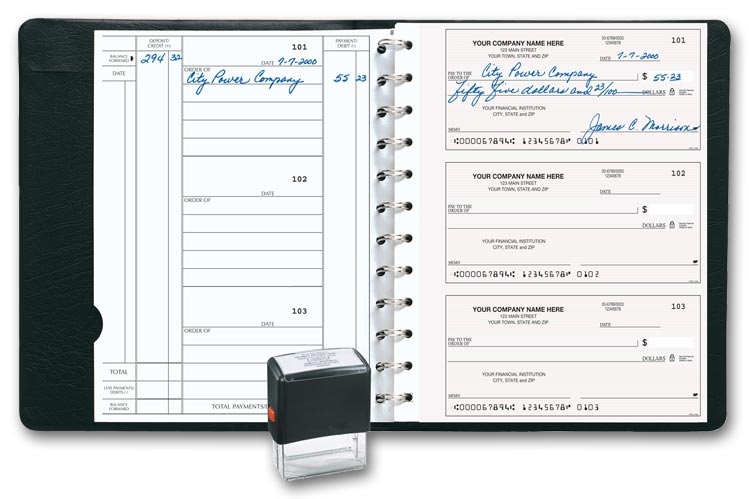 DEPOSIT/
CREDIT (+)
PAYMENT/
DEBIT (-)
101
BALANCE
FORWARD
294 32
DATE 7-7-2000
DATE
ORDER OF
City Power Company 55 23
102
DATE
ORDER OF
103
DATE
ORDER OF
TOTAL
LESS PAYMENTS/
DEBITS (-)
BALANCE
FORWARD
TOTAL PAYMENTS/
YOUR COMPANY NAME HERE
123 MAIN STREET
YOUR TOWN, STATE and ZIP
00-6789/0000
12345678
101
DATE 7-7-2000
PAY TO THE
ORDER OF City Power Company $ 55.23
fifty five dollars and 23/100 DOLLARS
YOUR FINANCIAL INSTITUTION
CITY, STATE and ZIP
MEMO James C. Morrison
⑆000067894⑆ 12345678⑈ 0101
YOUR COMPANY NAME HERE
123 MAIN STREET
YOUR TOWN, STATE AND ZIP
00-6789/0000
12345678
102
DATE
PAY TO THE
ORDER OF $
DOLLARS
YOUR FINANCIAL INSTITUTION
CITY, STATE and ZIP
MEMO
⑆000067894⑆ 12345678⑈ 0102
YOUR COMPANY NAME HERE
123 MAIN STREET
YOUR TOWN, STATE AND ZIP
00-6789/0000
12345678
103
DATE
PAY TO THE
ORDER OF $
DOLLARS
YOUR FINANCIAL INSTITUTION
CITY, STATE and ZIP
MEMO
⑆000067894⑆ 12345678⑈ 0103